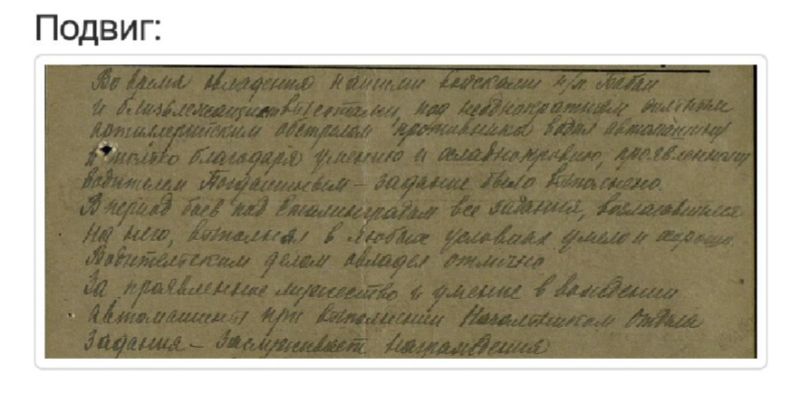 Подвиг:
Во время овладения нашими войсками н/п. Бабаи
и близлежащими высотами, под неоднократным сильным
артиллерийским обстрелом противника водил автомашину
и только благодаря умению и хладнокровию, проявленному
водителем – задание было выполнено.
В период боев под Сталинградом все задания, возлагавшиеся
на него, выполнял в любых условиях умело и хорошо.
Водительским делом овладел отлично
За проявленные мужество и умение в вождении
автомашины при выполнении Начальником Отдела
Задания – Заслуживает награждения